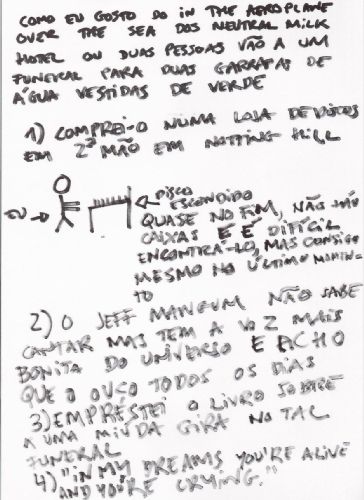 COMO EU GOSTO DO IN THE AEROPLANE
OVER THE SEA DOS NEUTRAL MILK
HOTEL OU DUAS PESSOAS VÃO A UM
FUNERAL PARA DUAS GARRAFAS DE
ÁGUA VESTIDAS DE VERDE
1) COMPREI-O NUMA LOJA DE DISCOS
EM 2ª MÃO EM NOTTING HILL
EU → ← DISCO
ESCONDIDO
QUASE NO FIM, NÃO HÁ
CAIXAS E É DIFÍCIL
ENCONTRÁ-LO, MAS CONSIGO
MESMO NO ÚLTIMO MOMEN-
TO
2) O JEFF MANGUM NÃO SABE
CANTAR MAS TEM A VOZ MAIS
BONITA DO UNIVERSO E ACHO
QUE O OUÇO TODOS OS DIAS
3) EMPRESTEI O LIVRO SOBRE
A UMA MIÚDA GIRA NO TAL
FUNERAL
4) "IN MY DREAMS YOU'RE ALIVE
AND YOU'RE CRYING."